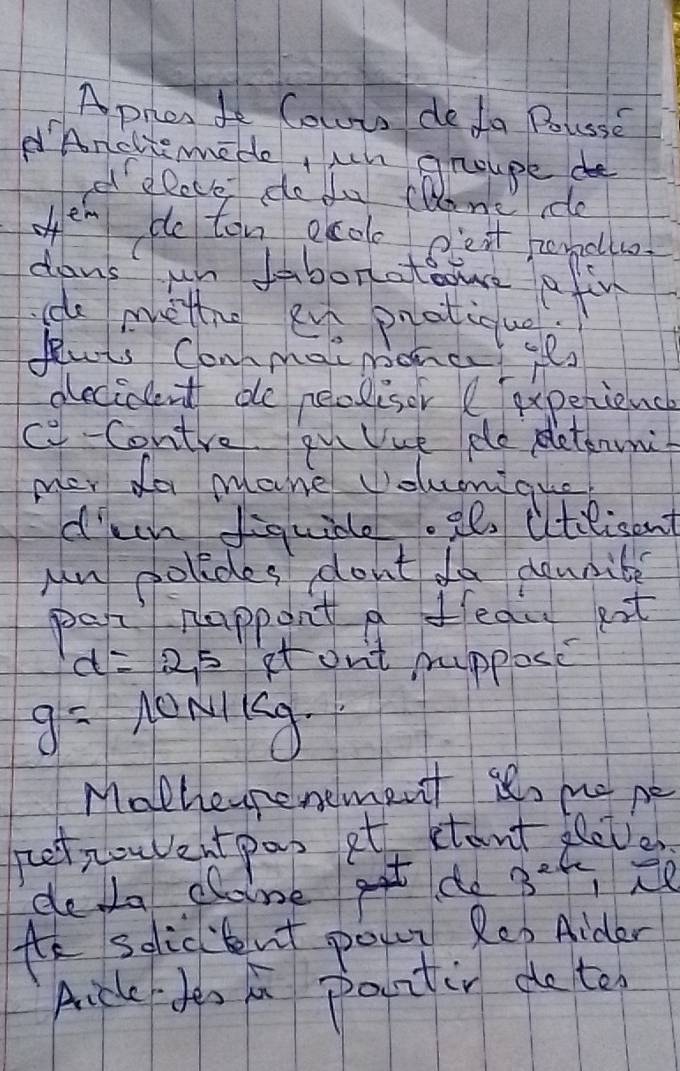 Apres le Cours de la Poussé
d'Archiemède, un groupe de
d'elevé de la classe de
4em de ton ecole s'est rendus
dans un laboratoire afin
de mettre en pratique
leurs Connaissance, ils
decident de realiser l'experience
Ci-Contre en Vue de determi-
ner la masse Volumique
d'un liquide. ils Utilisent
un solides dont la densité
par rapport a l'eau est
d= 2,5 et ont supposé
g= 10N/Kg.
Malheureusement ils ne se
retrouvent pas et etant eleves
de la classe de 3eme, il
te solicitent pour les Aider
Aide-les à partir de tes